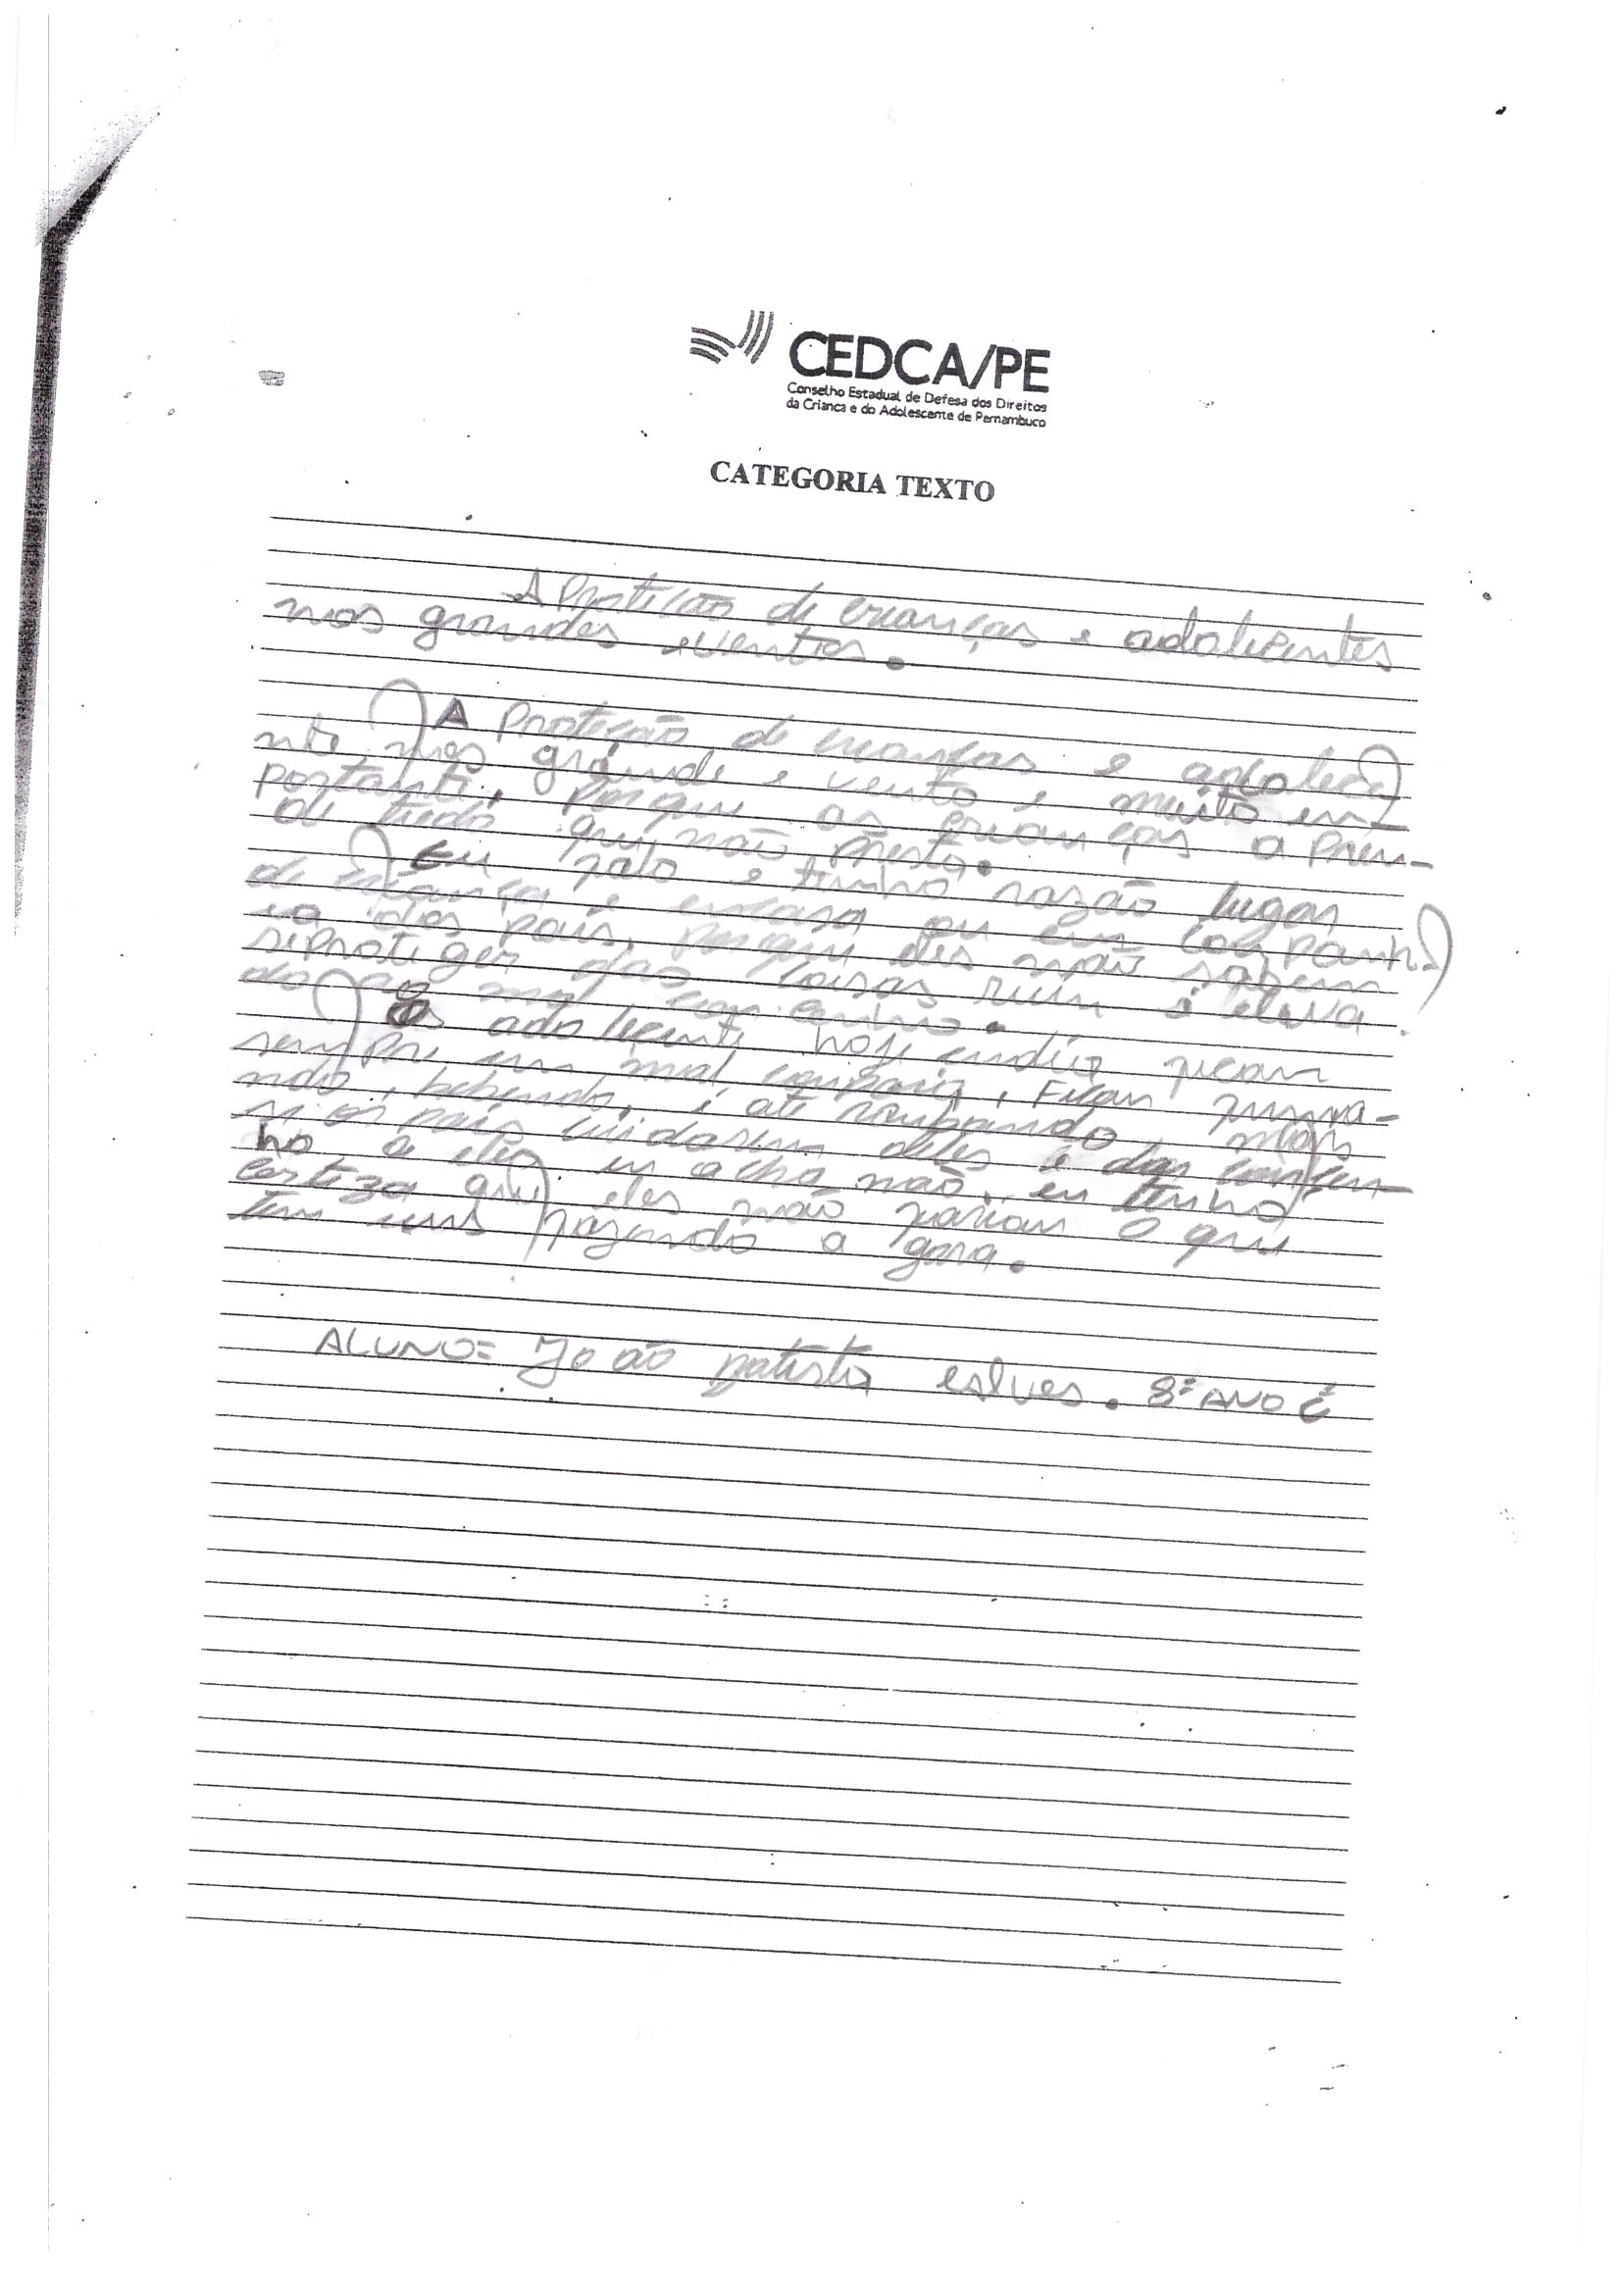 CEDCA/PE
Conselho Estadual de Defesa dos Direitos
da Criança e do Adolescente de Pernambuco
CATEGORIA TEXTO
A Proteção de crianças e adolecentes
nos grandes eventos.
A Proteção de crianças e adolece
nte nos grande e vento e muito em
portante, Porque as crianças a Pren-
de tudo que não Presta.
Eu falo e tenho razão lugar
de criança é encasa ou em companh
ia dos pais, porque eles não sabem
seproteger das coisas ruin e eleva
do ao mal caminho.
Os adolecente hoje endia ficam
sempre em mal, Ficam fuma-
ndo, bebendo, e até roupando, mais
si os pais cuidarem deles e das concen-
ho a eles eu acho não, eu tenho
certeza que eles não fariam o que
tem uns fazendo a gora.
ALUNO= João batista eslves. 8º ANO E